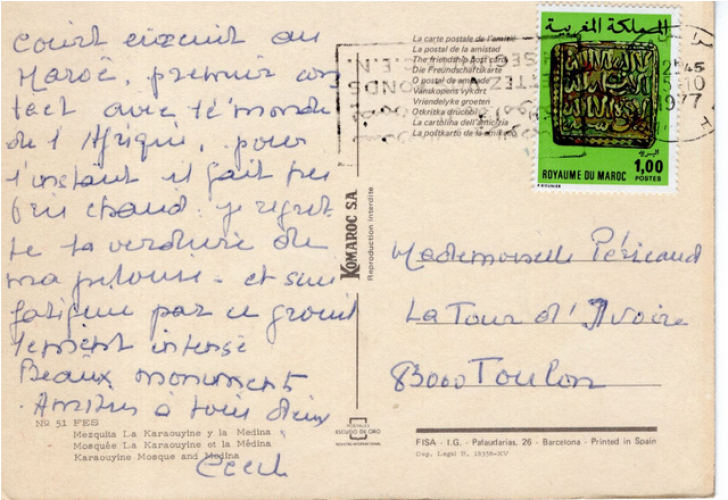 Court circuit au
Maroc, premier con
tact avec le monde
de l'Afrique, pour
l'instant il fait
chaud. je regret
te la verdure de
ma pelouse - et suis
par ce
intense
Beaux monuments
Amitiés à tous deux
Cecile
Nº 51 FES
Mezquita La Karaouyine y la Medina
Mosquée La Karaouyine et la Médina
Karaouyine Mosque and Medina
KOMAROC S.A.
Reproduction interdite
POSTALES
ESCUDO DE ORO
La carte postale de l'amitié
La postal de la amistad
The friendship post card
Die Freundschaftskarte
O postal de amizade
Vänskapens vykort
Vriendelyke groeten
Otkritka druchbi
La cartolina dell'amicizia
La postkarto de la
المملكة المغربية
البريد
1,00
POSTES
ROYAUME DU MAROC
1977
Mademoiselle Péricaud
La Tour d'Ivoire
83000 Toulon
FISA - I.G. - Palaudarias, 26 - Barcelona - Printed in Spain
Dep. Legal B. 18358-XV